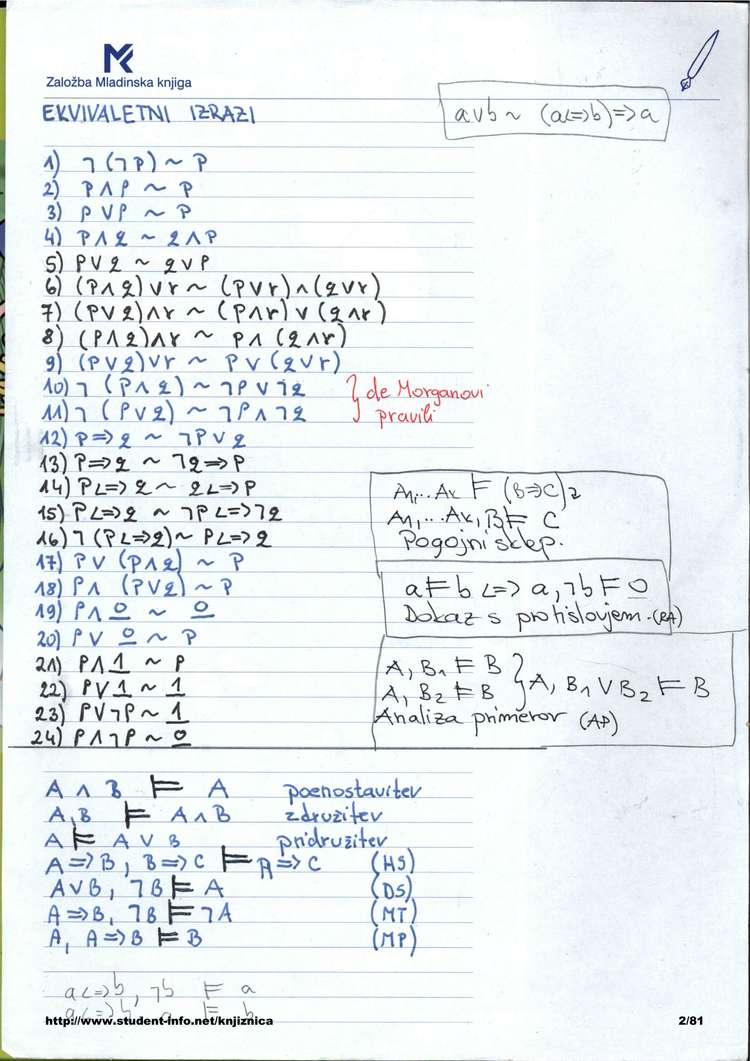 Založba Mladinska knjiga
EKVIVALETNI IZRAZI
a∨b ~ (a<=>b)=>a
1) ¬(¬P) ~ P
2) P∧P ~ P
3) P∨P ~ P
4) P∧2 ~ 2∧P
5) P∨2 ~ 2∨P
6) (P∧2)∨r ~ (P∨r)∧(2∨r)
7) (P∨2)∧r ~ (P∧r)∨(2∧r)
8) (P∧2)∧r ~ P∧(2∧r)
9) (P∨2)∨r ~ P∨(2∨r)
10) ¬(P∧2) ~ ¬P∨¬2
11) ¬(P∨2) ~ ¬P∧¬2
} de Morganovi
pravili
12) P=>2 ~ ¬P∨2
13) P=>2 ~ ¬2=>P
14) P<=>2 ~ 2<=>P
15) P<=>2 ~ ¬P<=>¬2
16) ¬(P<=>2) ~ P<=>2
17) P∨(P∧2) ~ P
18) P∧(P∨2) ~ P
19) P∧0 ~ 0
20) P∨0 ~ P
21) P∧1 ~ P
22) P∨1 ~ 1
23) P∨¬P ~ 1
24) P∧¬P ~ 0
A1,... Ak ⊨ (B=>C)
A1,... Ak, B ⊨ C
Pogojni sklep.
a⊨b <=> a,¬b⊨0
Dokaz s protislovjem. (RA)
A, B1 ⊨ B
A, B2 ⊨ B } A, B1 ∨ B2 ⊨ B
Analiza primerov (AP)
A ∧ B ⊨ A poenostavitev
A,B ⊨ A∧B združitev
A ⊨ A ∨ B pridružitev
A=>B, B=>C ⊨ A=>C (HS)
A∨B, ¬B ⊨ A (DS)
A=>B, ¬B ⊨ ¬A (MT)
A, A=>B ⊨ B (MP)
a<=>b, ¬b ⊨ a
a<=>b, a ⊨ b
http://www.student-info.net/knjiznica
2/81